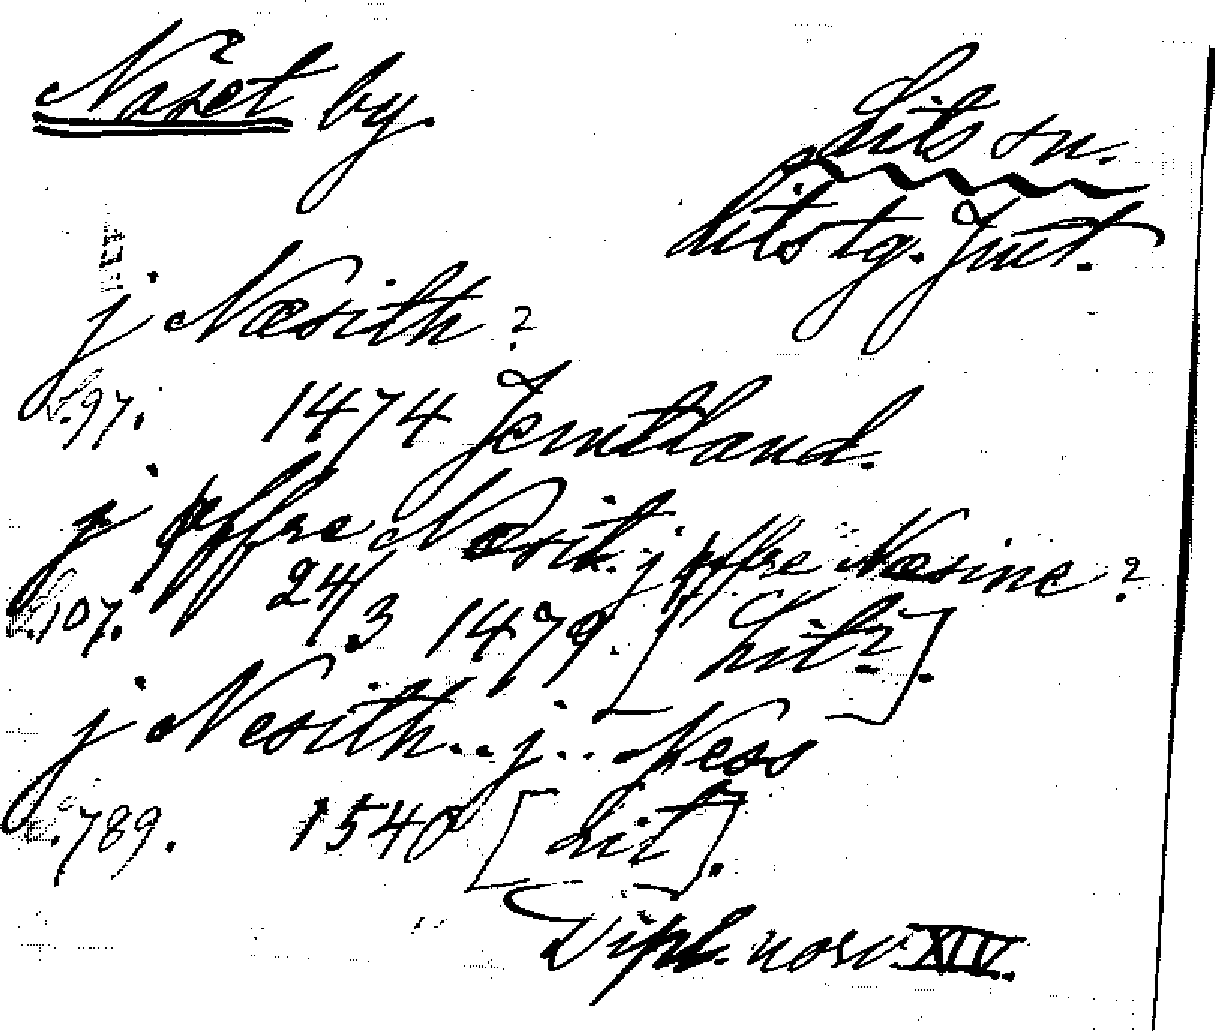 Näset by.
Lits sn.
Lits tg. Jmt.
j Næsith ?
s. 97. 1474 Jemtland.
j øffre Næsit. j øffre Næsine ?
s. 107. 24/3 1479. [Lit?].
j Nesith.. j.. Ness
s. 789. 1540 [Lit].
Dipl. norv. XIV.